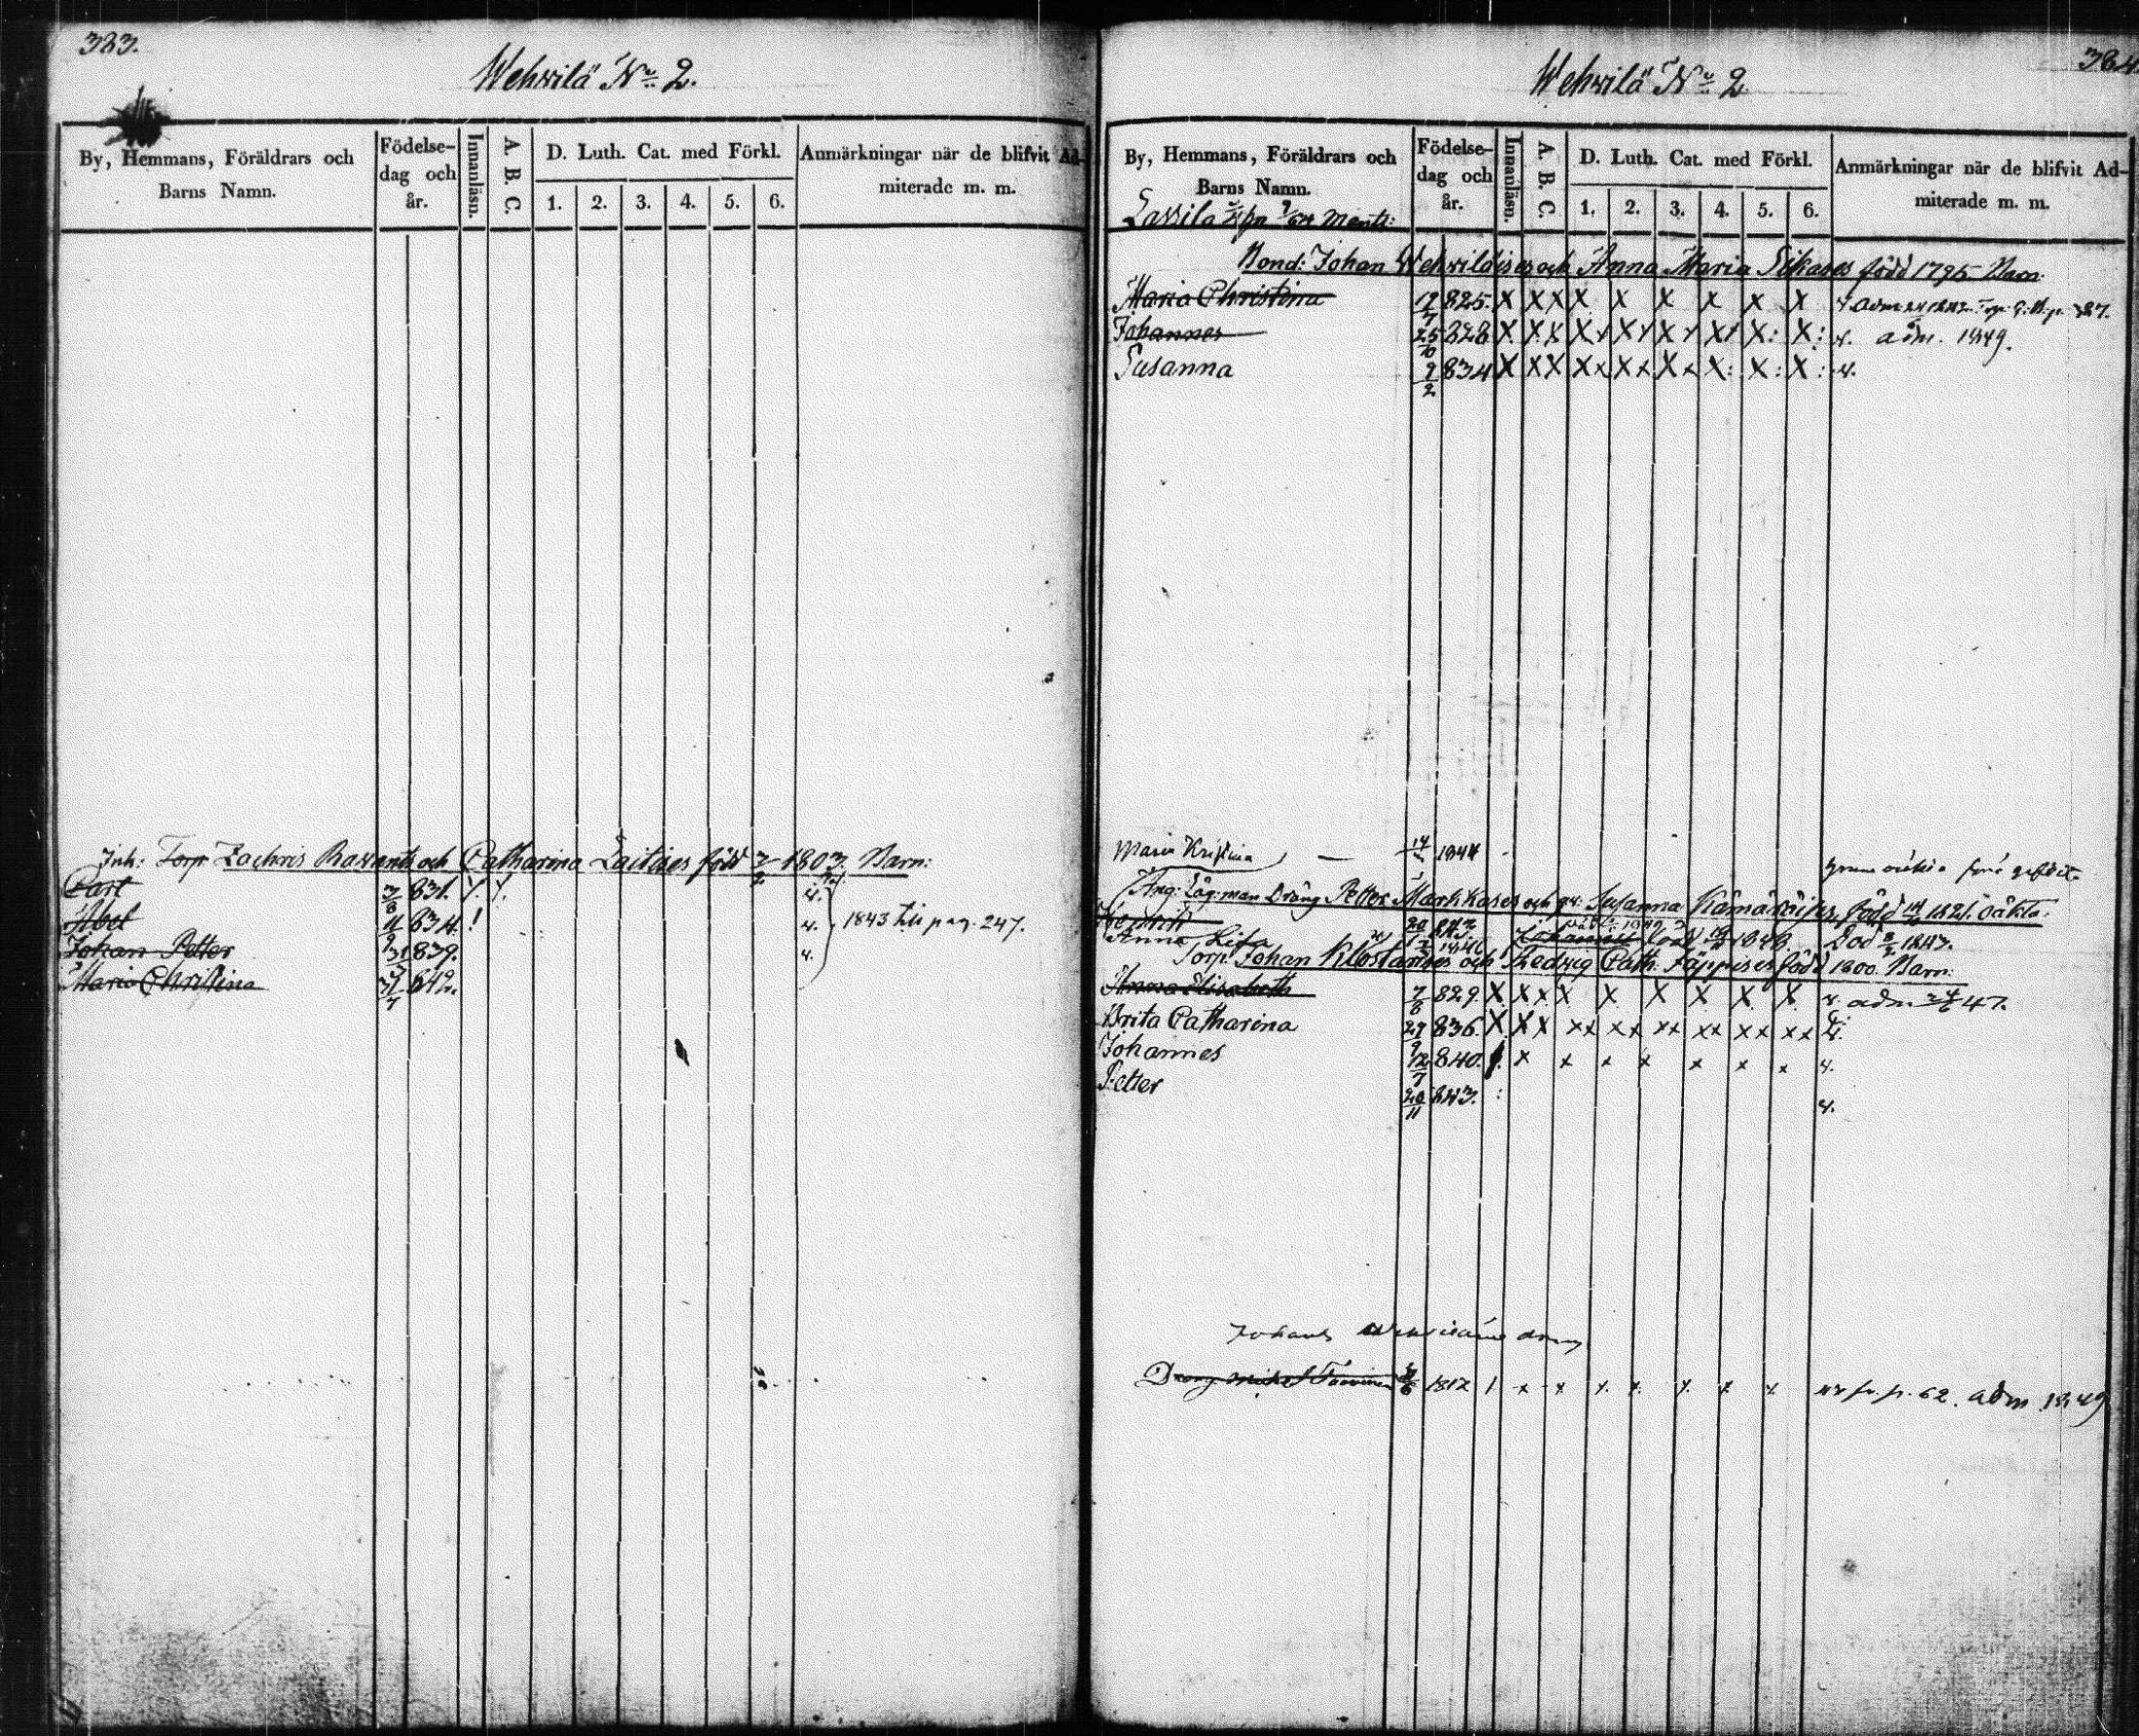 383.
Wehvilä No 2.
By, Hemmans, Föräldrars och Barns Namn.
Födelse-dag och år.
Innanläsn.
A. B. C.
D. Luth. Cat. med Förkl.
1. 2. 3. 4. 5. 6.
Anmärkningar när de blifvit Ad-miterade m. m.
Inh: Torp Zachris Rawants och Catharina Laitises född 3/2 1803. Barn:
Carl 3/8 831.
Abel 834. ! 4.
Johan Petter 31 839. 4. 1843 till pag. 247.
Maria Christina 31/7 842.
384
Wehvilä No 2
By, Hemmans, Föräldrars och Barns Namn.
Födelse-dag och år.
Innanläsn.
A. B. C.
D. Luth. Cat. med Förkl.
1. 2. 3. 4. 5. 6.
Anmärkningar när de blifvit Ad-miterade m. m.
Lassila
Bond: Johan Wehviläises och Anna Maria Sikases född 1795 Barn:
Maria Christina 19/7 825. X X X X X X X X X
Johannes 25/10 828 X X X X X X X X: X: 4. adm. 1849.
Susanna 9/2 834 X X X X x X x X x X: X: X: 4.
Maria Kristina 14 1844
Dräng Petter Markkases och Susanna Kämäräises, född 1821. oäkta:
Henrik 20 843 Död 1847.
Anna Lisa 1846 Johannes född 1848.
Torp. Johan Klostarises och Hedwig Cath: Jäppises född 1800. Barn:
Anna Elisabeth 7/8 829. X X x X X X X X X 4. adm 47.
Brita Catharina 27/9 836. X X X x x x x x x x x x x x x 4.
Johannes 12/7 840. x x x x x x x 4.
Petter 20/11 843. : 4.
Johan
Dräng Michel 1812 62. adm 1849